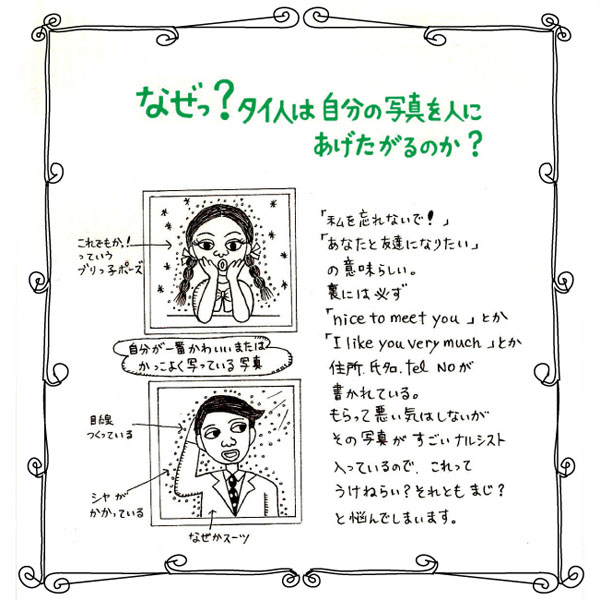 なぜっ？タイ人は自分の写真を人に
あげたがるのか？
これでもか。！
っていう
ブリっ子ポーズ
自分が一番かわいいまたは
かっこよく写っている写真
目線
つくっている
シャが
かかっている
なぜかスーツ
「私を忘れないで！」
「あなたと友達になりたい」
の意味らしい。
裏には必ず
「nice to meet you」とか
「I like you very much」とか
住所.氏名.tel NOが
書かれている。
もらって悪い気はしないが
その写真がすごいナルシスト
入っているので、これって
うけねらい？それともまじ？
と悩んでしまいます。